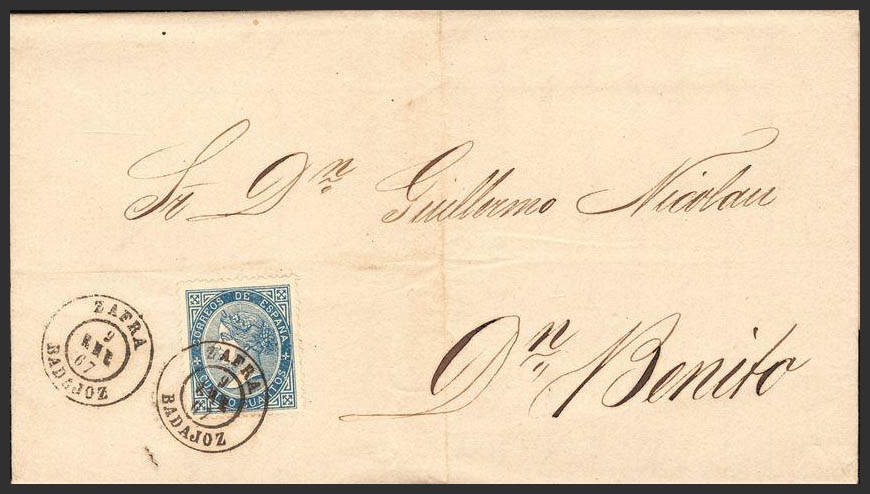 Sr Dn Guillermo Nicolau
Dn Benito
CORREOS DE ESPAÑA
CUATRO CUARTOS
ZAFRA
9
ENE
67
BADAJOZ
ZAFRA
9
ENE
67
BADAJOZ